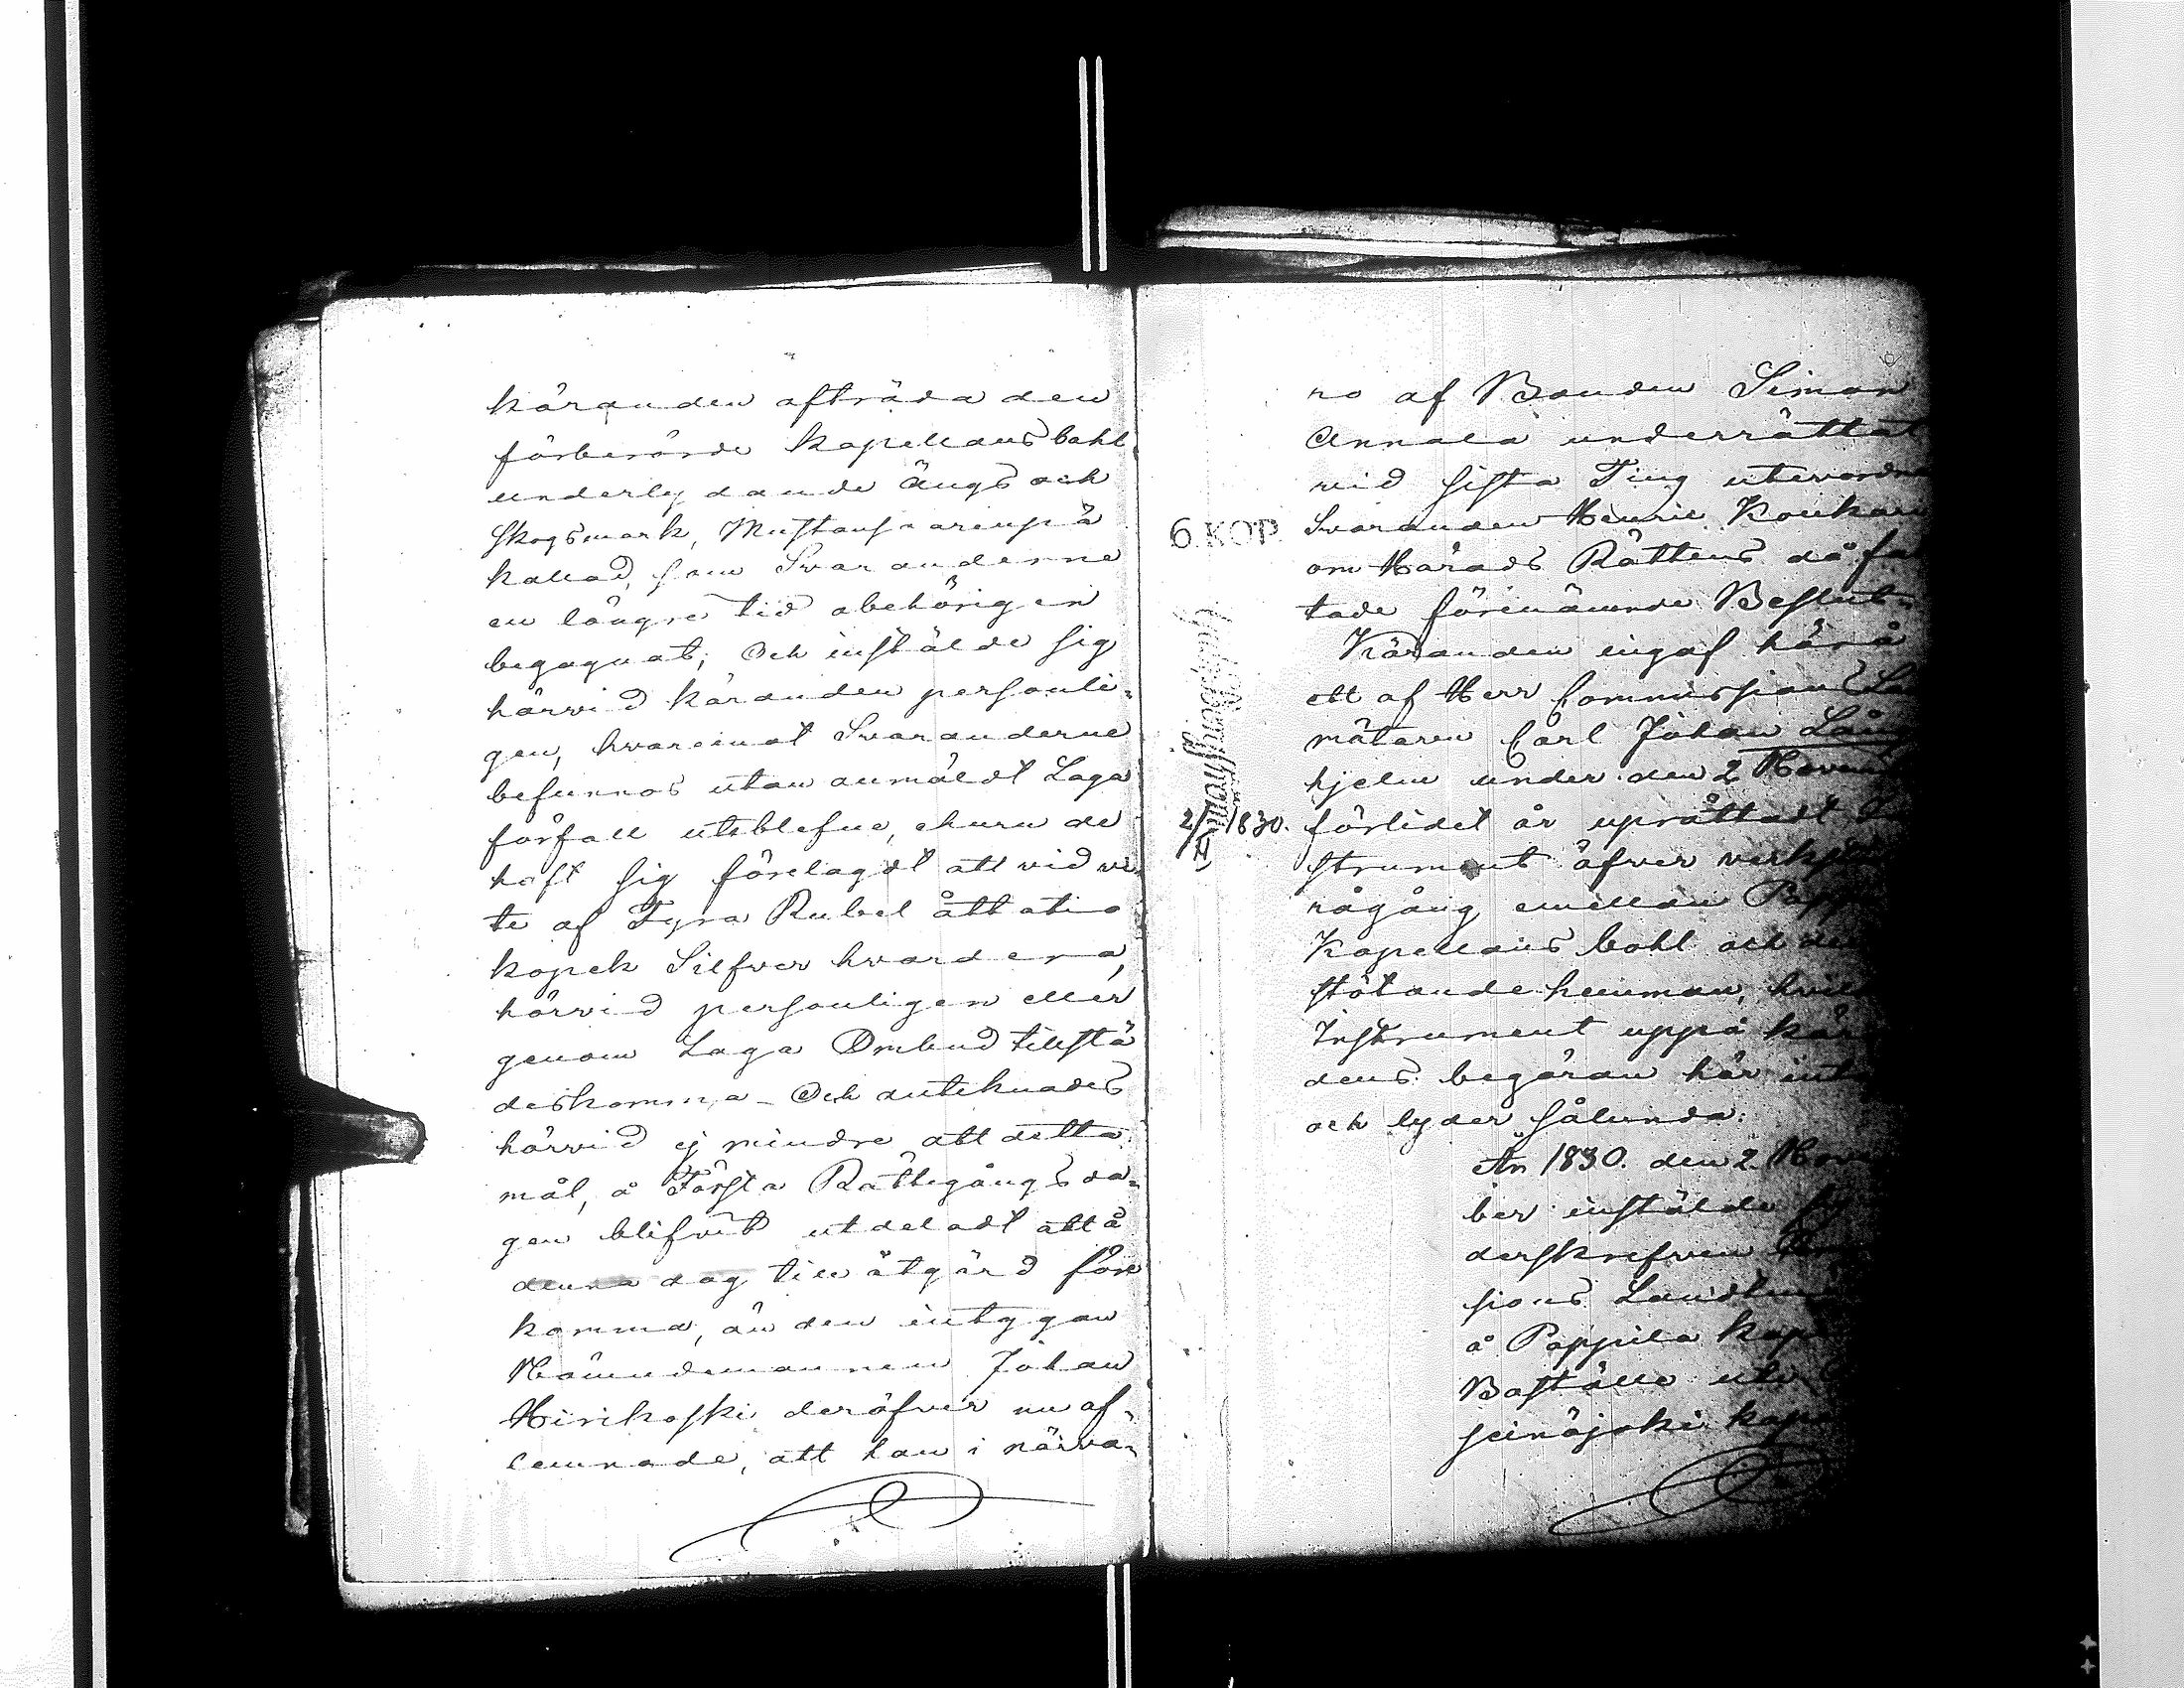 käranden afträda den
förberörde kapellans bohl
underlydande Ängs och
Skogsmark, Mustansaarenpä
kallad, som Svaranderne
en längre tid obehörigen
begagnat; Och instälde sig
härvid käranden personli-
gen, hvaremot Svaranderne
befunnos utan anmäldt Laga
förfall uteblefne, ehuru de
haft sig förelagdt att vid vi-
te af Fyra Rubel åttatio
kopek Silfver hvardera,
härvid personligen eller
genom Laga Ombud tillstä
deskomma - Och antecknades
härvid ej mindre att detta
mål, å Första Rättegångsda-
gen blifvit utdeladt att å
denna dag till åtgärd före
komma, än den intygan
Nämndemannen Johan
Hirikoski deröfver nu af-
lemnade, att han i närva-
ro af Bonden Simon
Annala underrättat
vid sista Ting
Svaranden Henric Koukari
om Härads Rättens då fat
tade förenämnde Beslut-
Käranden ingaf härå
ett af Herr Commissions
mätaren Carl Johan
hjelm under den 2 Novemb
förlidet år uprättadt
strument öfver
rågång emellan
Kapellans bohl och
stötande hemman,
Instrument uppå
dens begäran här
och lyder sålunda:
År 1830. den 2
ber instälde
derskrefven
sions
å Pappila
Boställe uti
seinäjoki
6 KOP.
2/11 1830.